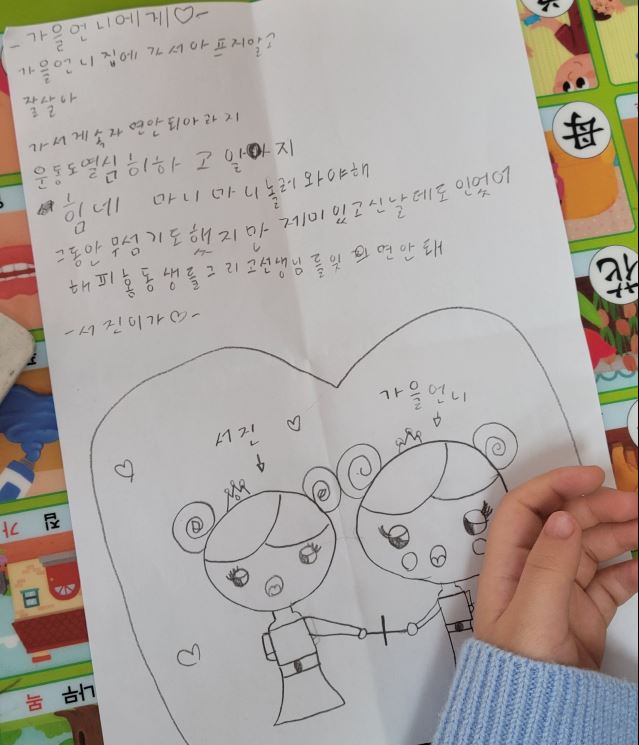 -가을언니에게♡-
가을언니 집에 가서 아프지말고
잘살아
가서 계속 자 연안되아라지
운동도열심히하고 알아지
힘네 마니마니놀러와야해
그동안 무섭기도했지만 제미있고신날데도 인었어
해피홈동생들그리고선생님들잊으면안돼
-서진이가♡-
가을언니
서진
母
花
집 가
나무 목